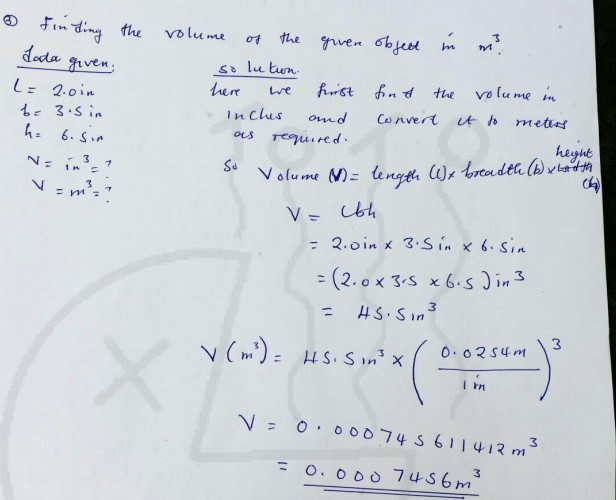 ③ Finding the volume of the given object in m³.
Data given:
L = 2.0in
b = 3.5in
h = 6.5in
V = in³ = ?
V = m³ = ?
solution
here we first find the volume in
inches and convert it to meters
as required.
So Volume (V) = length (l) x breadth (b) x height (h)
V = lbh
= 2.0in x 3.5in x 6.5in
= (2.0 x 3.5 x 6.5) in³
= 45.5in³
V (m³) = 45.5in³ x (0.0254m / 1in)³
V = 0.000745611412m³
= 0.0007456m³